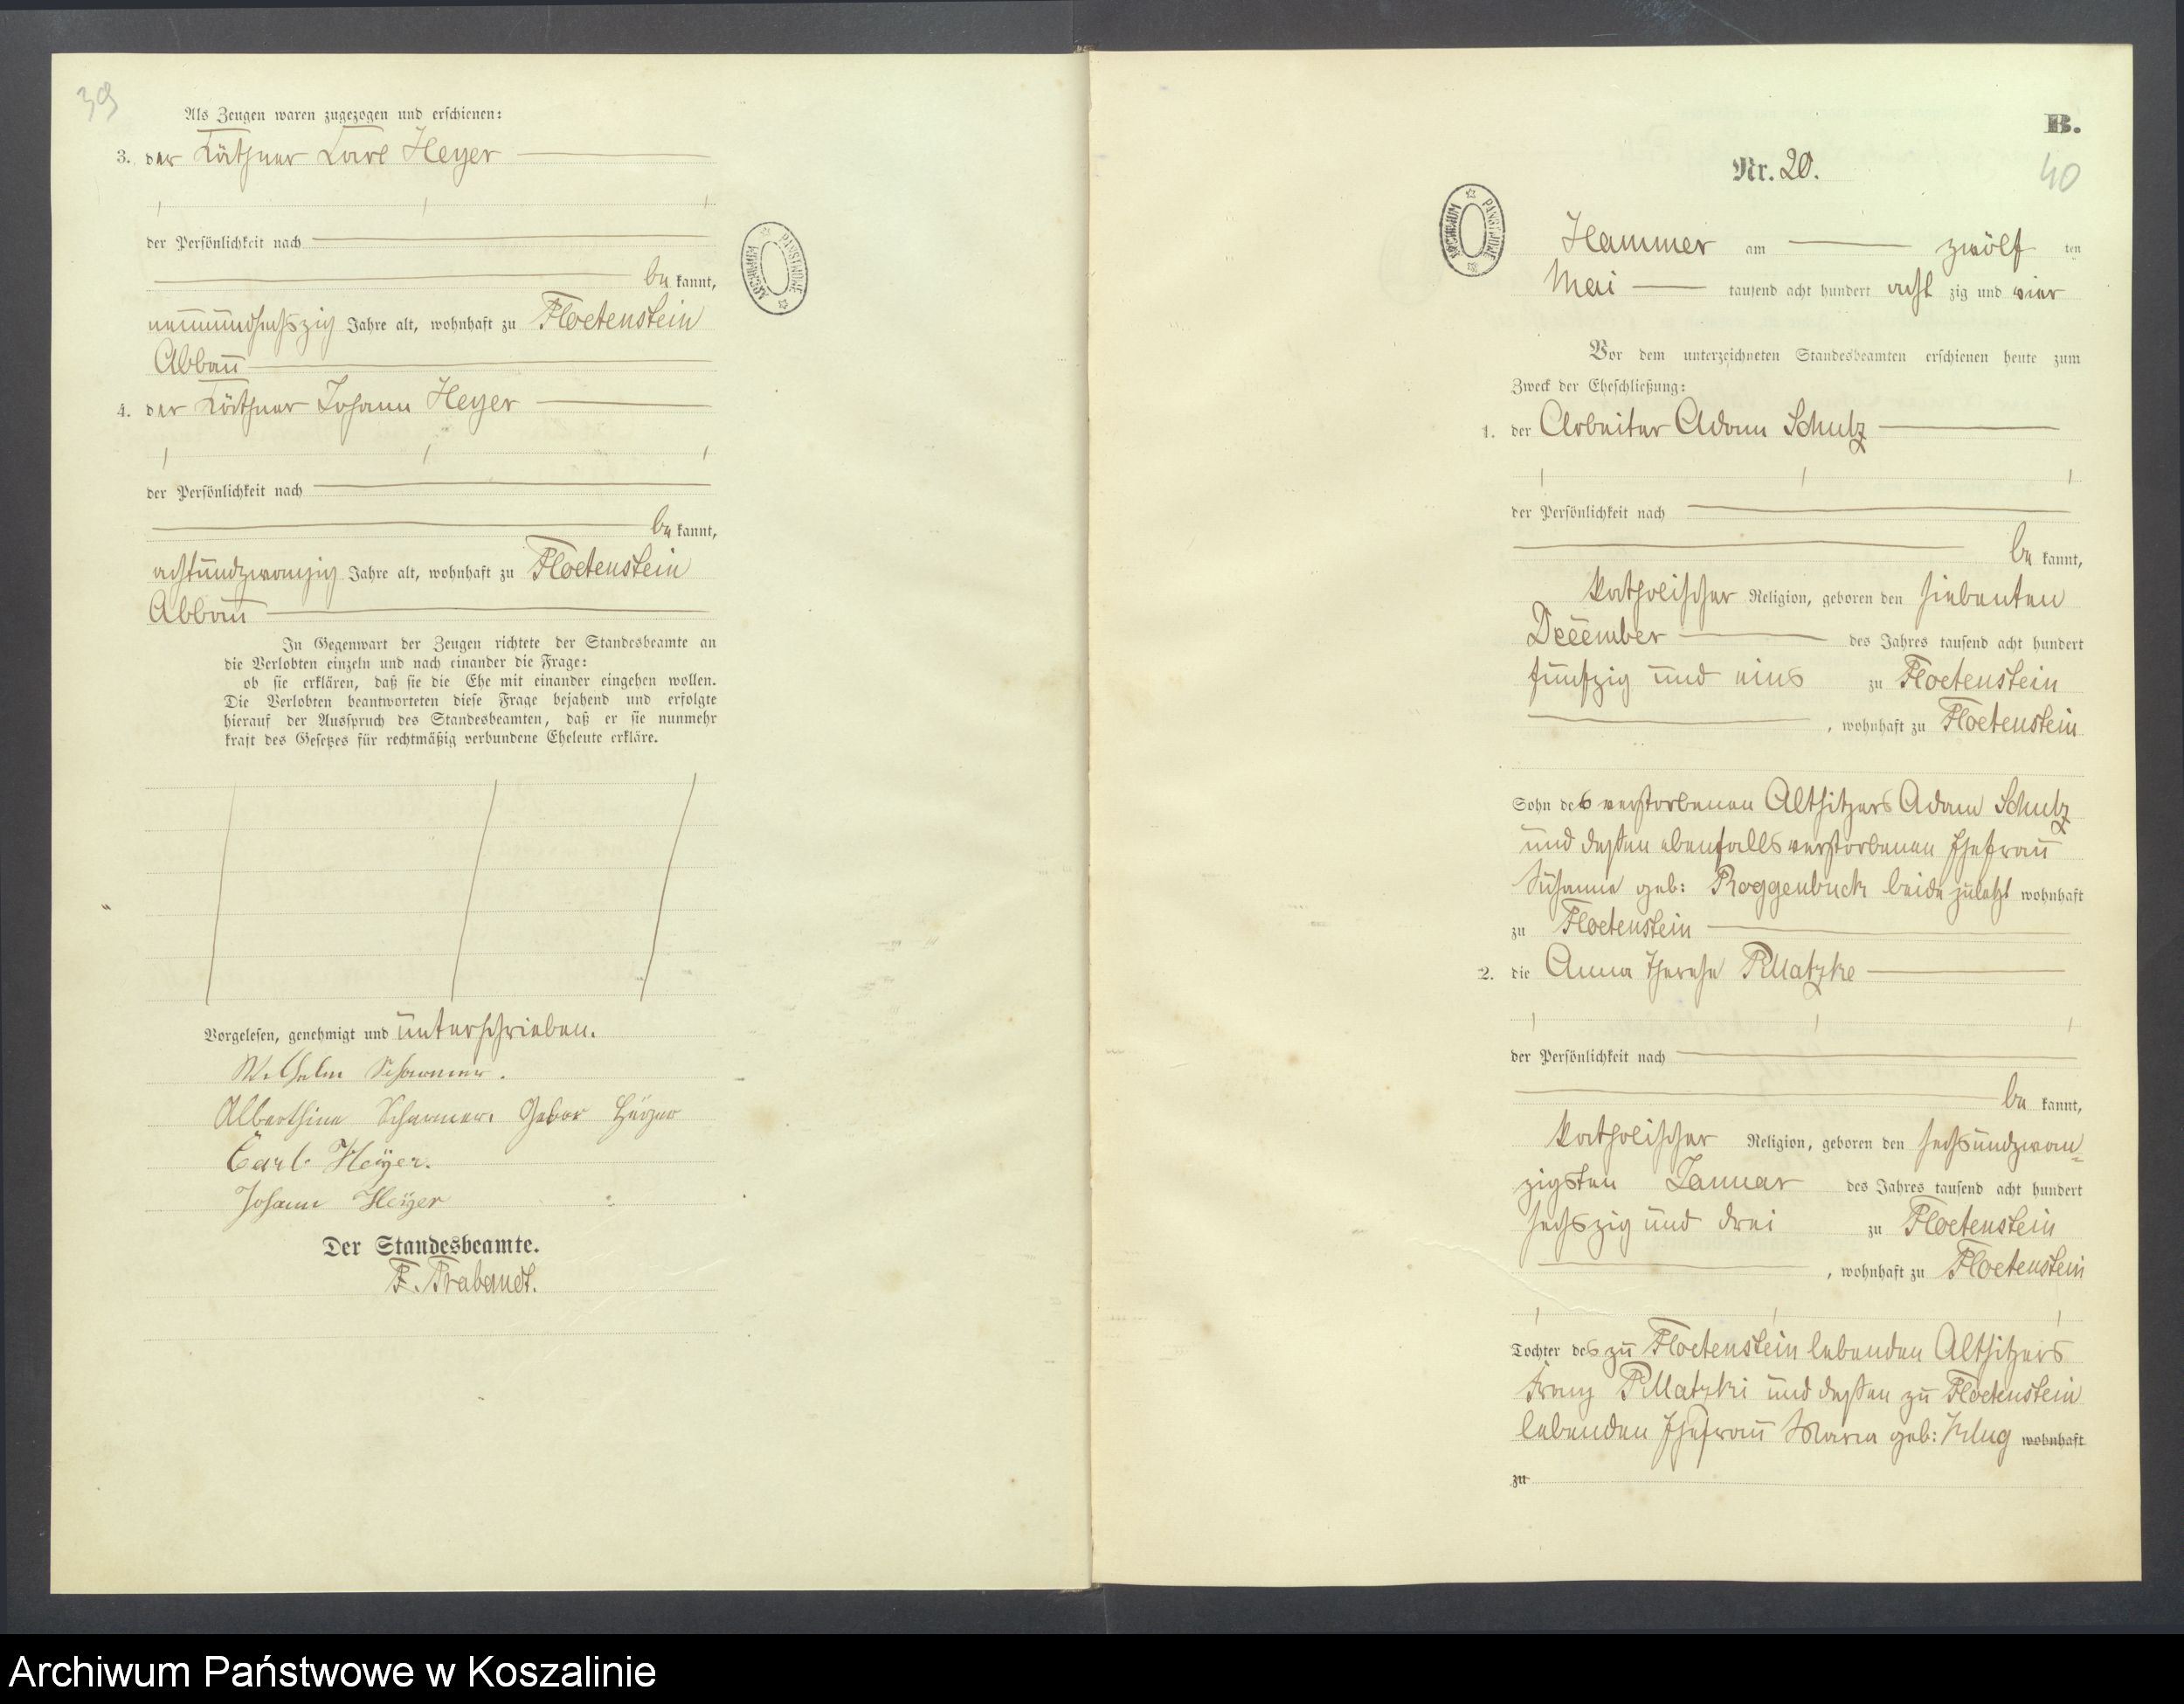 39
Als Zeugen waren zugezogen und erschienen:
3. der Käthner Carl Heyer
der Persönlichkeit nach
be kannt,
neunundsechszig Jahre alt, wohnhaft zu Floetenstein
Abbau
4. der Käthner Johann Heyer
der Persönlichkeit nach
be kannt,
achtundzwanzig Jahre alt, wohnhaft zu Floetenstein
Abbau
In Gegenwart der Zeugen richtete der Standesbeamte an
die Verlobten einzeln und nach einander die Frage:
ob sie erklären, daß sie die Ehe mit einander eingehen wollen.
Die Verlobten beantworteten diese Frage bejahend und erfolgte
hierauf der Ausspruch des Standesbeamten, daß er sie nunmehr
kraft des Gesetzes für rechtmäßig verbundene Eheleute erkläre.
Vorgelesen, genehmigt und unterschrieben.
Wilhelm
Albertine
Carl Heÿer.
Johann Heÿer
Der Standesbeamte.
F. Brabandt.
ARCHIWUM PAŃSTWOWE
B.
40
Nr. 20.
ARCHIWUM PAŃSTWOWE
Hammer am zwölf ten
Mai tausend acht hundert acht zig und vier
Vor dem unterzeichneten Standesbeamten erschienen heute zum
Zweck der Eheschließung:
1. der Arbeiter Adam Schulz
der Persönlichkeit nach
be kannt,
katholischer Religion, geboren den siebenten
December des Jahres tausend acht hundert
fünfzig und eins zu Floetenstein
, wohnhaft zu Floetenstein
Sohn des verstorbenen Altsitzers Adam Schulz
und dessen ebenfalls verstorbenen Ehefrau
Susanna geb: Roggenbuck beide zuletzt wohnhaft
zu Floetenstein
2. die Anna Therese Pillatzke
der Persönlichkeit nach
be kannt,
katholischer Religion, geboren den sechsundzwan-
zigsten Januar des Jahres tausend acht hundert
sechszig und drei zu Floetenstein
, wohnhaft zu Floetenstein
Tochter des zu Floetenstein lebenden Altsitzers
Franz Pillatzki und dessen zu Floetenstein
lebenden Ehefrau Maria geb: Klug wohnhaft
zu
Archiwum Państwowe w Koszalinie